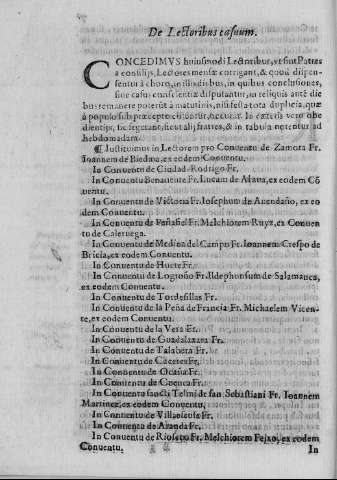 De Lectoribus casuum.
CONCEDIMVS huiusmodi Lectoribus, vt sint Patres
a consilijs, Lectores mensæ corrigant, & quod dispen-
sentur à choro, in illis diebus, in quibus conclusiones,
siue casus conscientiæ disputantur, in reliquis autē die
bus remanere poterūt à matutinis, nisi festa tota duplicia, quæ
à populo sub præcepto custodiuntur, occurrant. In cæteris vero obe
dientijs, sic legetant, sicut alij fratres, & in tabula notentur ad
hebdomadam.
¶ Instituimus in Lectorem pro Conuentu de Zamora Fr.
Ioannem de Biedau, ex eodem Conuentu.
In Conuentu de Ciudad-Rodrigo Fr.
In Conuentu Benauente Fr. Lucam de Alaua, ex eodem Cō
uentu.
In Conuentu de Victoria Fr. Iosephum de Acendaño, ex eo
dem Conuentu.
In Conuentu de Pañafiel Fr. Melchiorem Ruyz, ex Conuen
tu de Caleruega.
In Conuentu de Medina del Campo Fr. Ioannem Crespo de
Bricia, ex eodem Conuentu.
In Conuentu de Huete Fr.
In Conuentu de Logroño Fr. Ildephonsum de Salamanca,
ex eodem Conuentu.
In Conuentu de Tordesillas Fr.
In Conuentu de la Peña de Francia Fr. Michaelem Vicen-
te, ex eodem Conuentu.
In Conuentu de la Vera Fr.
In Conuentu de Guadalaxara Fr.
In Conuentu de Talabera Fr.
In Conuentu de Caceres Fr.
In Conuentu de Ocaña Fr.
In Conuentu de Cuenca Fr.
In Conuentu sancti Telmi de san Sebastiani Fr. Ioannem
Martinez, ex eodem Conuentu.
In Conuentu de Villaescusa Fr.
In Conuentu de Aranda Fr.
In Conuentu de Rioseco Fr. Melchiorem Feixo, ex eodem
Conuentu.
In